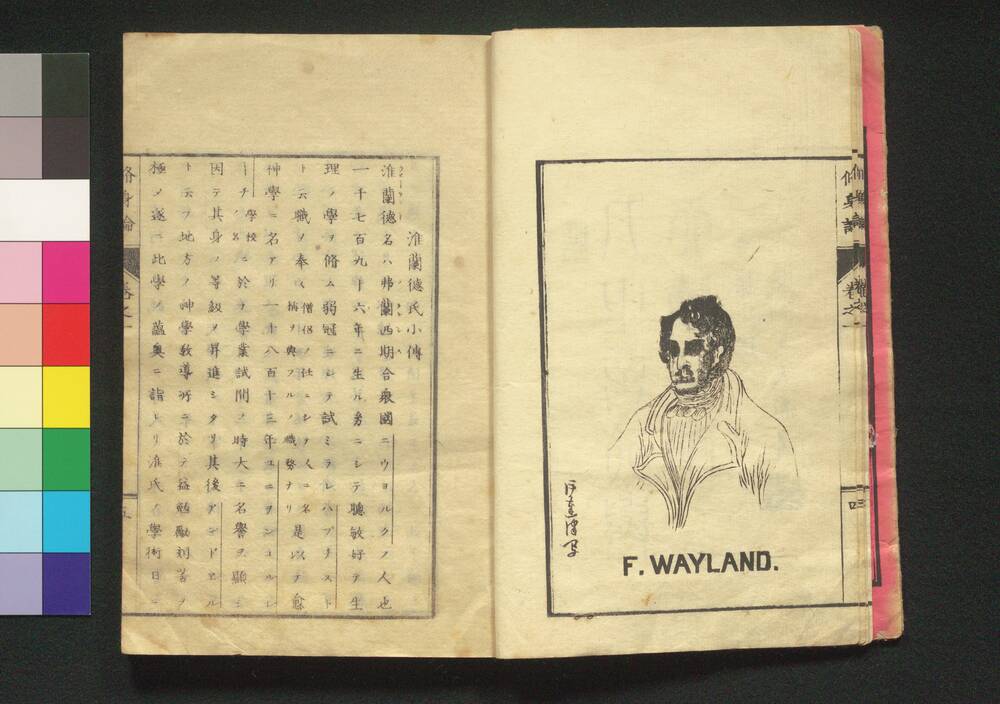 F. WAYLAND.
修身論
卷之一
四
淮蘭德氏小傳
淮蘭德名ハ弗蘭西期合衆國ニウヨルクノ人也
一千七百九十六年ニ生ル男ニシテ聰敏好テ生
理ノ學ヲ脩ム弱冠ニシテ試ミラレハプチスト
ト云職ヲ奉ス僧侶ノ仕ニシテ人ニ名稱ヲ與フルノ職務ナリ是以テ愈
神學ニ名アリ一千八百十三年ユニヲンコルレ
ーチ學校ノ名ニ於ヲ學業試問ノ時大ニ名譽ヲ顯ミ
因テ其身ノ等級ヲ昇進ミタリ其後アンドヒル
ト云フ地方ノ神學教導所ニ於テ益勉勵刻苦ノ
極メ遂ニ此學ノ蘊奥ニ詣レリ淮氏ノ學術日ニ
脩身論
卷之一
五